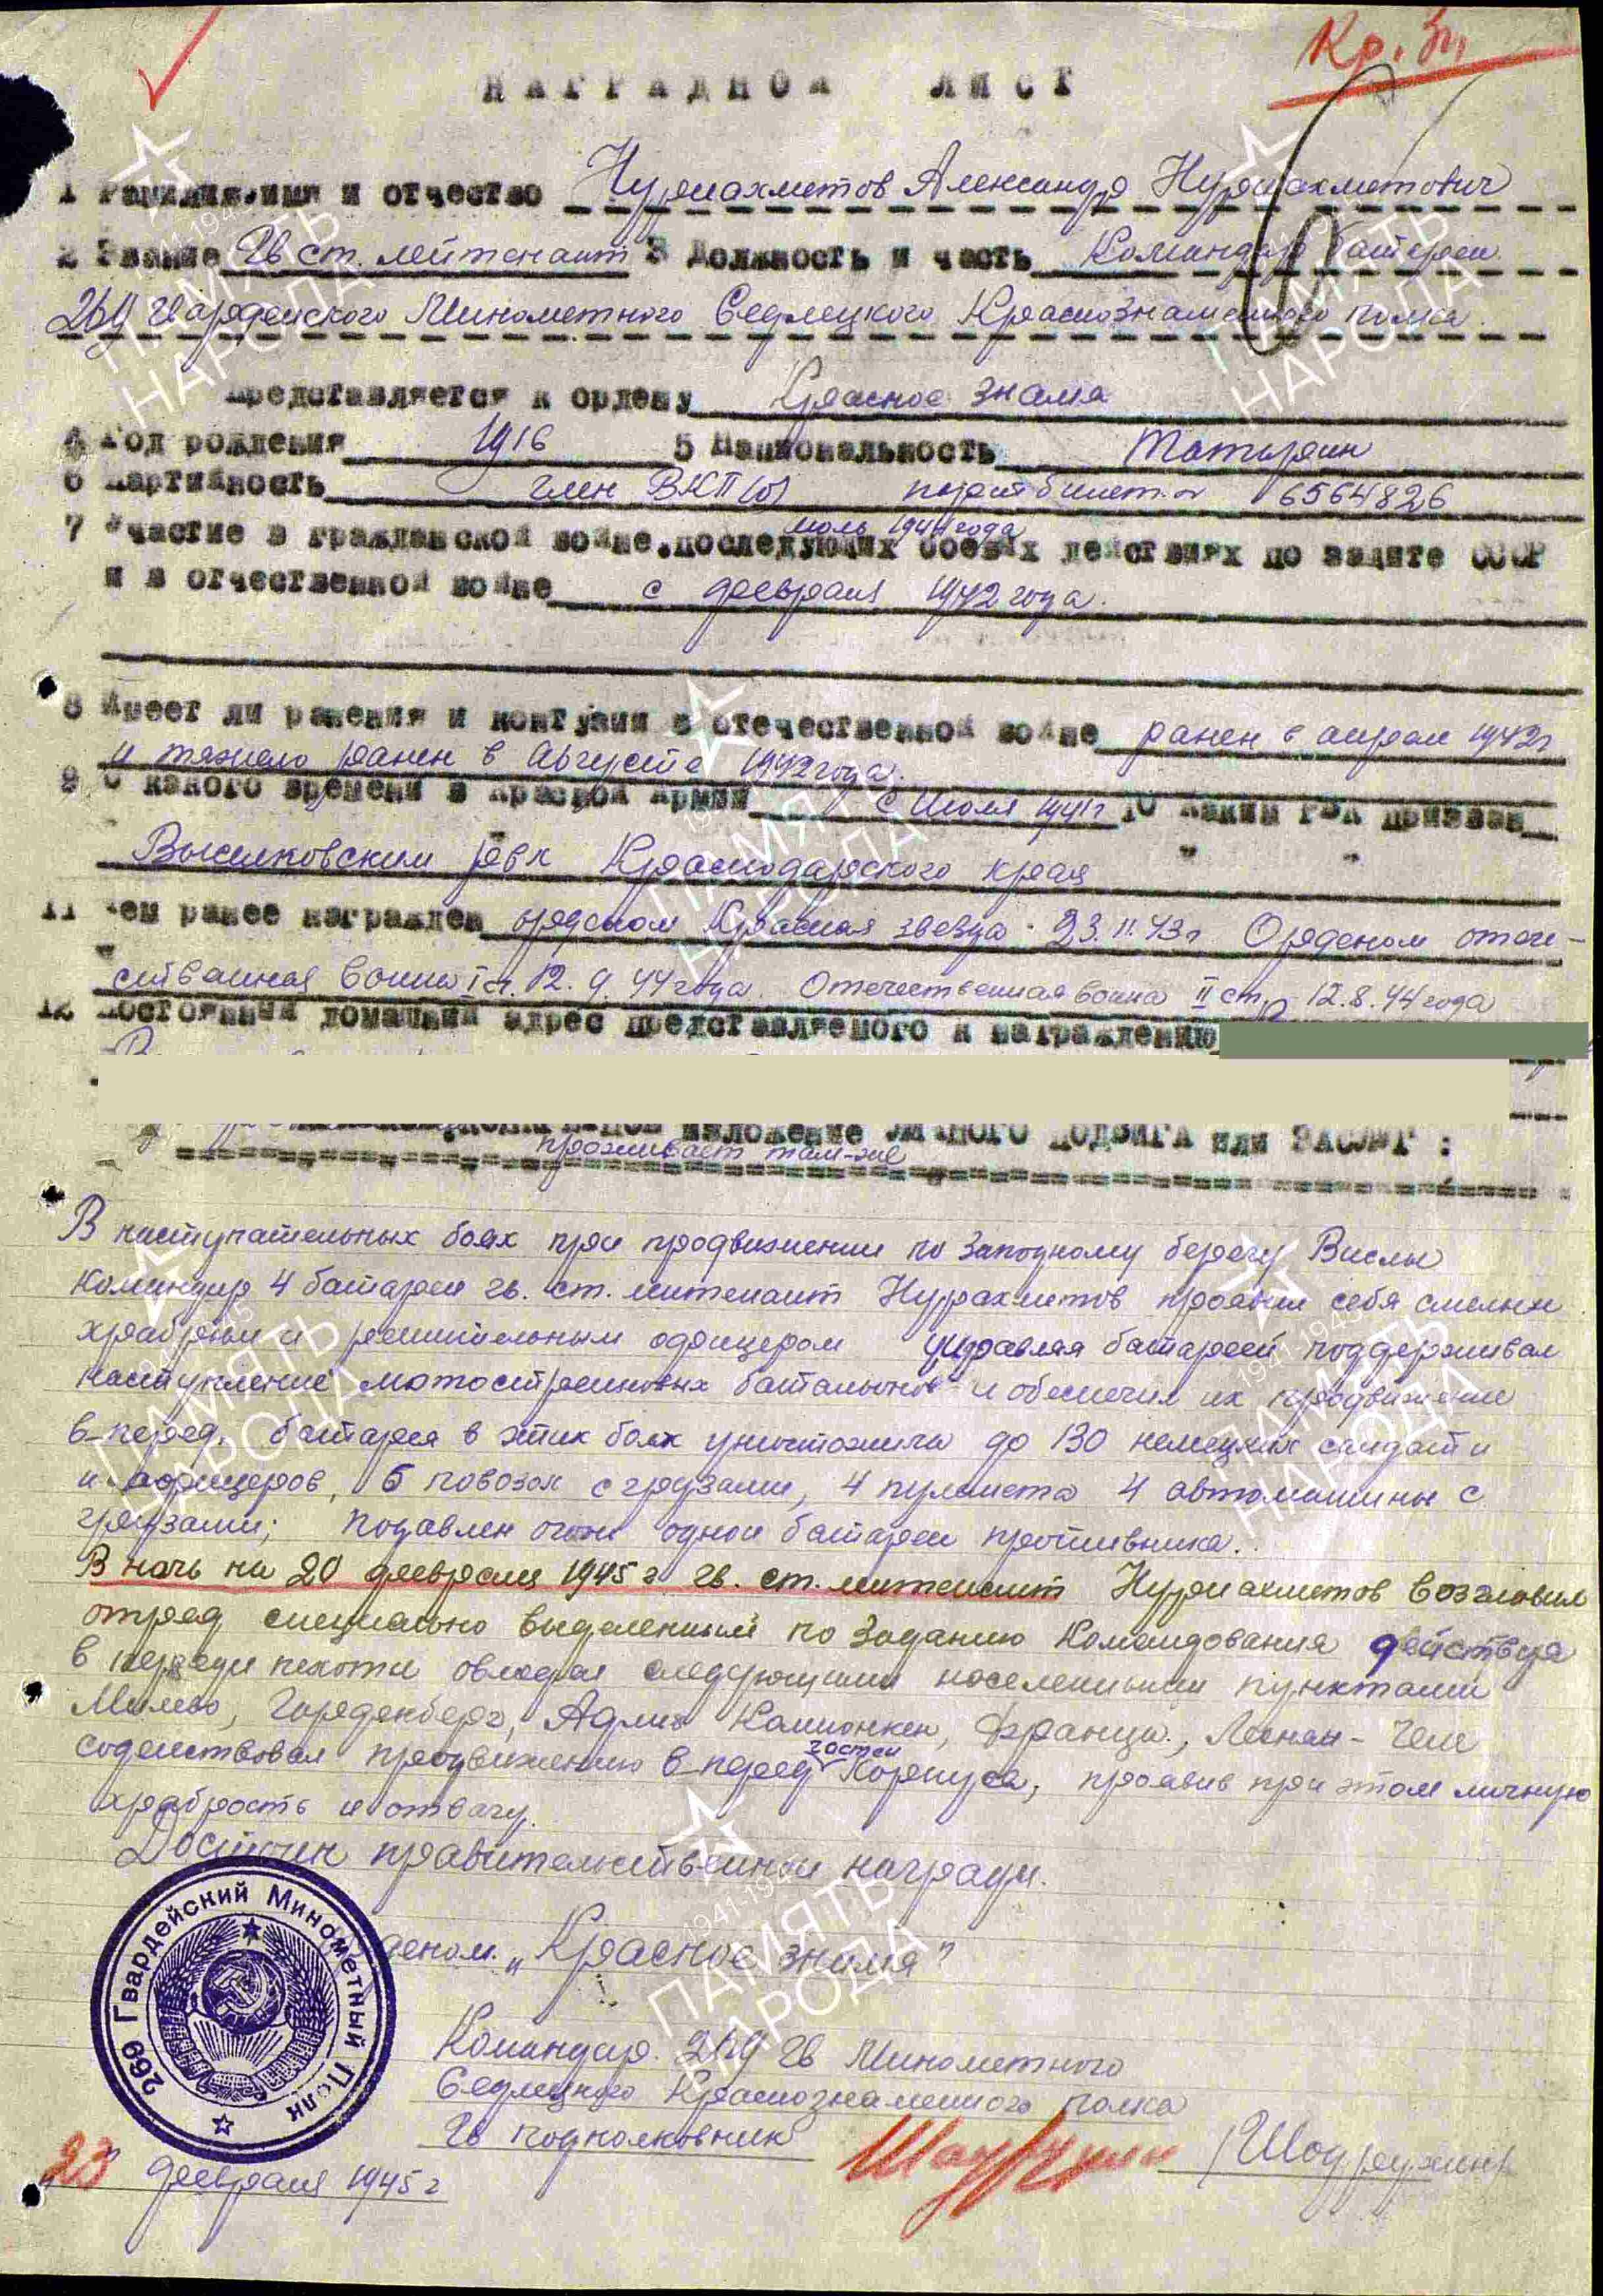 Кр. Зн.
НАГРАДНОЙ ЛИСТ
1 Фамилия, имя и отчество Нурмахметов Александр Нурмахметович
2 Звание Гв ст. лейтенант 3 Должность и часть Командир батареи
269 Гвардейского Минометного Седлецкого Краснознаменного полка.
Представляется к ордену Красное знамя
4 Год рождения 1916 5 Национальность Татарин
6 Партийность член ВКП(б) парт билет № 6564826
июль 1941 года
7 Участие в гражданской войне, последующих боевых действиях по защите СССР
и в отечественной войне с февраля 1942 года.
8 Имеет ли ранения и контузии в отечественной войне ранен в апреле 1942г
и тяжело ранен в Августе 1942 года.
9 С какого времени в Красной Армии с Июля 1941г 10 Каким РВК призван
Выселковским рвк Краснодарского края
11 Чем ранее награжден орденом Красная звезда 23.11.43г Орденом отече-
ственная воина I ст. 12.9.44 года. Отечественная воина II ст. 12.8.44 года
12 Постоянный домашний адрес представляемого к награждению
изложение личного подвига или заслуг :
проживает там-же
В наступательных боях при продвижении по Западному берегу Вислы
Командир 4 батареи гв. ст. лейтенант Нурмахметов проявил себя смелым
храбрым и решительным офицером управляя батареей поддерживал
наступление мотострелковых батальонов и обеспечил их продвижение
в-перед. батарея в этих боях уничтожила до 130 немецких солдат и
и офицеров, 6 повозок с грузами, 4 пулемета 4 автомашины с
грузами; подавлен огонь одной батареи противника.
В ночь на 20 февраля 1945 г гв. ст. лейтенант Нурмахметов возглавил
отряд специально выделенный по Заданию Командования действуя
в переди пехоты овладел следующими населенными пунктами
Милево, Гарденберг, Адлиг Камионкен, Франца, Леснян - Чем
содействовал продвижению в-перед частей Корпуса, проявив при этом личную
храбрость и отвагу.
Достоин правительственной награды.
орденом „Красное знамя"
Командир 269 Гв Минометного
Седлецкого Краснознаменного полка
Гв подполковник
„23" февраля 1945 г
269 Гвардейский Минометный Полк
ПАМЯТЬ НАРОДА
1941-1945